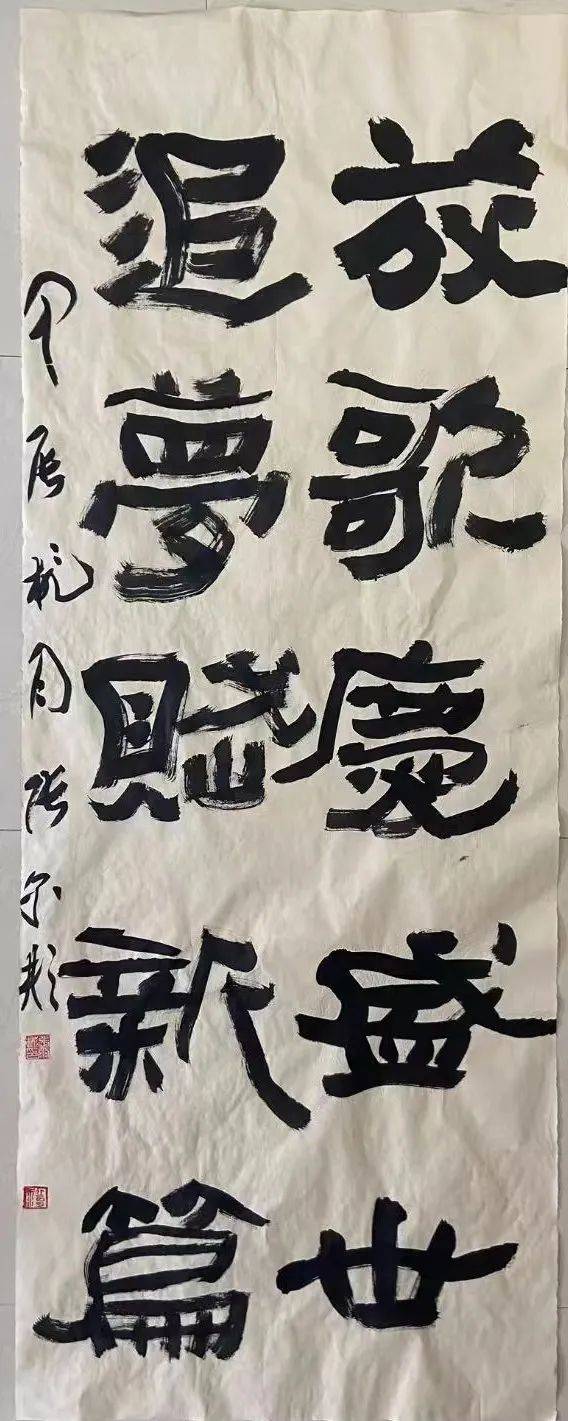 放歌慶盛世
追夢賦新篇
甲辰桃月張